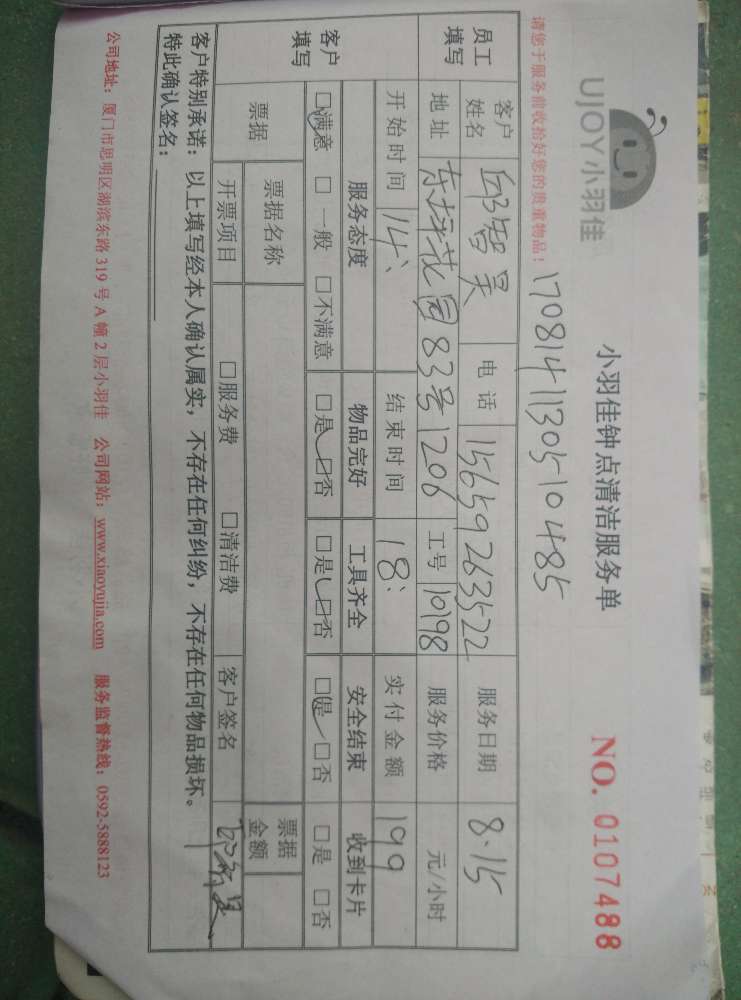 UJOY小羽佳
小羽佳钟点清洁服务单
NO. 0107488
请您于服务前收拾好您的贵重物品！
170814113051 0485
员工填写 客户姓名 邱智昊 电话 15659263522 服务日期 8.15
地址 东坪花园83号1206 工号 10198 服务价格 元/小时
开始时间 14、 结束时间 18、 实付金额 199
客户填写 服务态度 物品完好 工具齐全 安全结束 收到卡片
□满意 □一般 □不满意 □是 □否 □是 □否 □是 □否 □是 □否
票据 票据名称 票据金额
开票项目 □服务费 □清洁费 客户签名
客户特别承诺：以上填写经本人确认属实，不存在任何纠纷，不存在任何物品损坏。
特此确认签名：
公司地址：厦门市思明区湖滨东路319号A幢2层小羽佳 公司网站：www.xiaoyujia.com 服务监督热线：0592-5888123